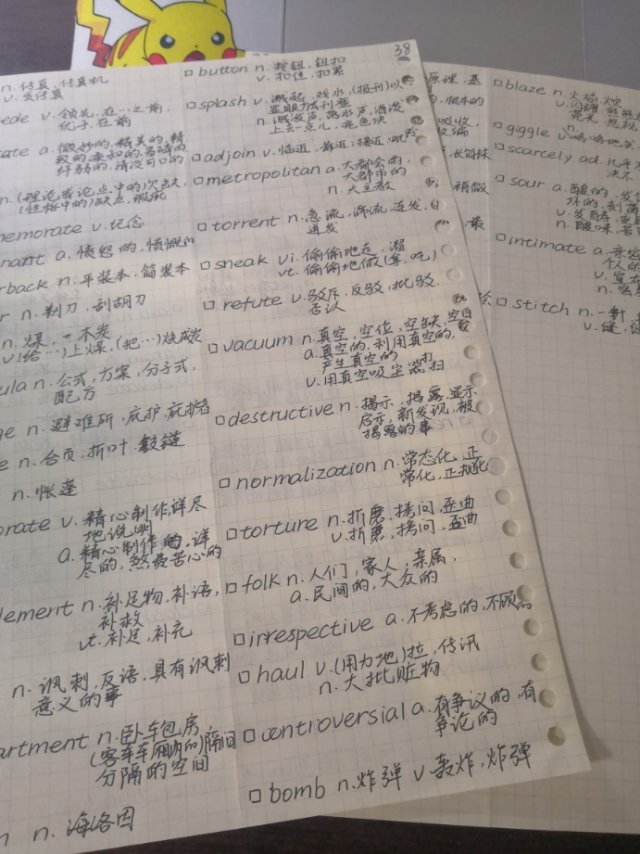 38
n. 传真, 传真机
v. 发传真
ede v. 领先, 在…之前,
ate a. 微妙的, 精美的, 精
n. (理论或论点中的)欠缺,
(性格中的)缺点, 瑕疵
emorate v. 纪念
nant a. 愤怒的, 愤慨的
rback n. 平装本, 简装本
r n. 剃刀, 刮胡刀
n. 煤, 木炭
v. (给…)上煤, (把…)烧成炭
ula n. 公式, 方案, 分子式,
配方
ge n. 避难所, 庇护, 庇护者
e n. 合页, 折叶, 铰链
n. 帐篷
orate v. 精心制作, 详尽
地说明
a. 精心制作的, 详
尽的, 煞费苦心的
lement n. 补足物, 补语,
补救
vt. 补足, 补充
n. 讽刺, 反语, 具有讽刺
意义的事
artment n. 卧车包房,
(客车车厢内的)隔间
分隔的空间
n n. 海洛因
□ button n. 按钮, 钮扣
v. 扣住, 扣紧
□ splash v. 溅起, 戏水, (报刊)以
□ adjoin v. 临近, 靠近, 接近, 毗际
□ metropolitan a. 大都会的,
大都市的
n. 大主教
□ torrent n. 急流, 湍流, 迸发,
迸发
□ sneak vi. 偷偷地走, 溜
vt. 偷偷地做(拿, 吃)
□ refute v. 驳斥, 反驳, 批驳,
否认
□ vacuum n. 真空, 空位, 空缺, 空白
a. 真空的, 利用真空的,
产生真空的
v. 用真空吸尘器扫
□ destructive n. 揭示, 揭露, 显示
启示, 新发现, 被
揭露的事
□ normalization n. 常态化, 正
常化, 正规化
□ torture n. 折磨, 拷问, 歪曲
v. 折磨, 拷问, 歪曲
□ folk n. 人们, 家人, 亲属,
a. 民间的, 大众的
□ irrespective a. 不考虑的, 不顾
□ haul v. (用力地)拉, 传讯
n. 大批赃物
□ controversial a. 有争议的, 有
争论的
□ bomb n. 炸弹 v. 轰炸, 炸弹
□ blaze n. 火焰
□ giggle v.
□ scarcely ad. 几乎
决不
□ sour a. 酸的, 发
n. 酸味,
□ intimate a. 亲密
个人的
□ stitch n. 一针
v. 缝, 缝